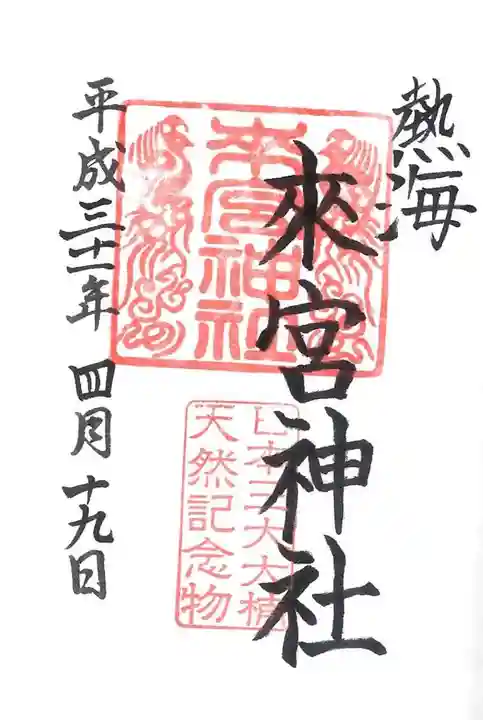 熱海
來宮神社
來宮神社
日本三大大楠
天然記念物
平成三十一年 四月十九日